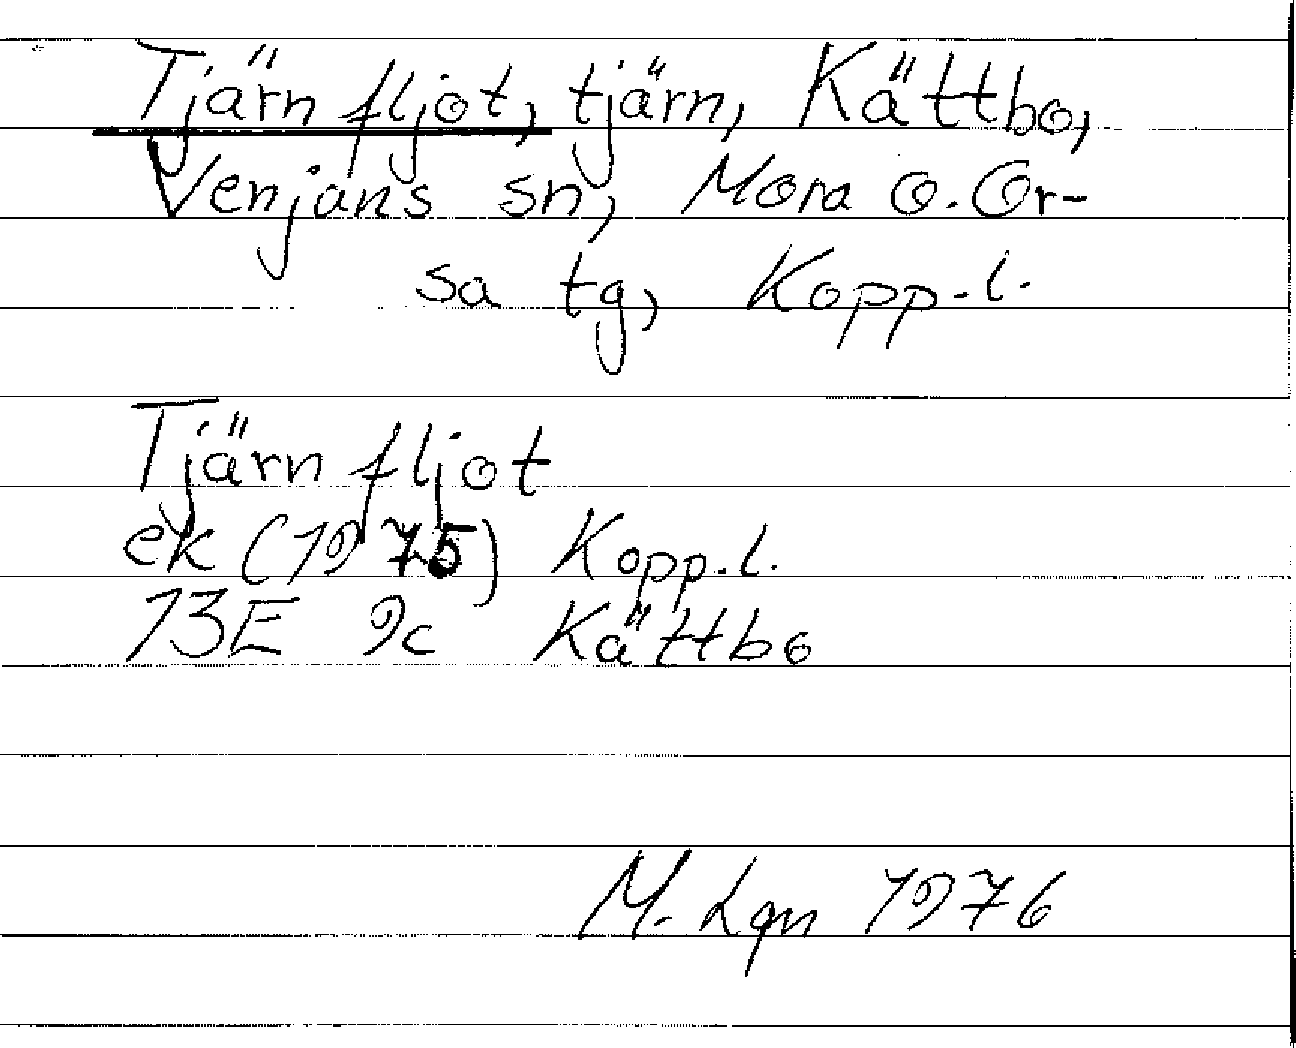 Tjärnfljot, tjärn, Kättbo,
Venjans sn, Mora o. Or-
sa tg, Kopp.l.
Tjärnfljot
ek (1975) Kopp.l.
13E 9c Kättbo
M. Lgn 1976